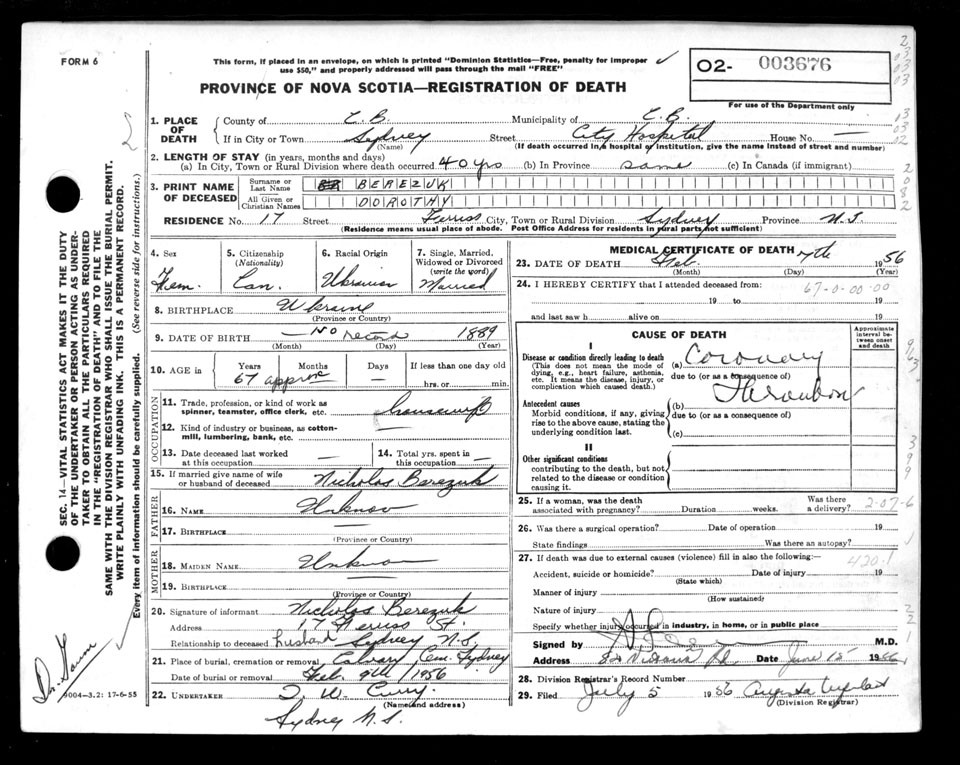 FORM 6
This form, if placed in an envelope, on which is printed "Dominion Statistics—Free, penalty for improper
use $50," and properly addressed will pass through the mail "FREE"
O2- 003676
PROVINCE OF NOVA SCOTIA—REGISTRATION OF DEATH
For use of the Department only
1. PLACE OF DEATH
County of C. B. Municipality of C. B.
If in City or Town Sydney Street City Hospital House No. —
(Name) (If death occurred in a hospital or institution, give the name instead of street and number)
2. LENGTH OF STAY (in years, months and days)
(a) In City, Town or Rural Division where death occurred 40 yrs (b) In Province same (c) In Canada (if immigrant)
3. PRINT NAME OF DECEASED
Surname or Last Name BEREZUK
All Given or Christian Names DOROTHY
RESIDENCE No. 17 Street Ferriss City, Town or Rural Division Sydney Province N.S.
(Residence means usual place of abode. Post Office Address for residents in rural parts not sufficient)
4. Sex Fem.
5. Citizenship (Nationality) Can.
6. Racial Origin Ukrainian
7. Single, Married, Widowed or Divorced (write the word) Married
8. BIRTHPLACE Ukraine
(Province or Country)
9. DATE OF BIRTH — No record 1889
(Month) (Day) (Year)
10. AGE in Years Months Days If less than one day old
67 approx — hrs. or min.
OCCUPATION
11. Trade, profession, or kind of work as
spinner, teamster, office clerk, etc. housewife
12. Kind of industry or business, as cotton-
mill, lumbering, bank, etc.
13. Date deceased last worked
at this occupation —
14. Total yrs. spent in
this occupation —
15. If married give name of wife
or husband of deceased Nicholas Berezuk
FATHER
16. NAME Unknow
17. BIRTHPLACE —
(Province or Country)
MOTHER
18. MAIDEN NAME Unknow
19. BIRTHPLACE —
(Province or Country)
20. Signature of informant Nicholas Berezuk
Address 17 Ferriss St.
Relationship to deceased husband Sydney N.S.
21. Place of burial, cremation or removal Calvary Cem. Sydney
Date of burial or removal Feb. 9th/1956
22. UNDERTAKER T. W. Curry
(Name and address)
Sydney N.S.
MEDICAL CERTIFICATE OF DEATH
23. DATE OF DEATH Feb. 7th 1956
(Month) (Day) (Year)
24. I HEREBY CERTIFY that I attended deceased from: 67-0-00-00
19 to 19
and last saw h alive on 19
CAUSE OF DEATH
Approximate interval between onset and death
I
Disease or condition directly leading to death
(This does not mean the mode of
dying, e.g., heart failure, asthenia,
etc. It means the disease, injury, or
complication which caused death.)
(a) Coronary
due to (or as a consequence of)
Antecedent causes
Morbid conditions, if any, giving
rise to the above cause, stating the
underlying condition last.
(b)
due to (or as a consequence of)
(c)
II
Other significant conditions
contributing to the death, but not
related to the disease or condition
causing it.
25. If a woman, was the death
associated with pregnancy? Duration weeks. Was there
a delivery? 2-07-6
26. Was there a surgical operation? Date of operation 19
State findings Was there an autopsy?
27. If death was due to external causes (violence) fill in also the following:— 420.1
Accident, suicide or homicide? Date of injury 19
(State which)
Manner of injury
(How sustained)
Nature of injury
Specify whether injury occurred in industry, in home, or in public place
Signed by M.D.
Address Date June 15 1956
28. Division Registrar's Record Number
29. Filed July 5 1956 Augusta
(Division Registrar)
SEC. 14—VITAL STATISTICS ACT MAKES IT THE DUTY
OF THE UNDERTAKER OR PERSON ACTING AS UNDER-
TAKER TO OBTAIN ALL THE PARTICULARS REQUIRED
IN THE "REGISTRATION OF DEATH" AND TO FILE THE
SAME WITH THE DIVISION REGISTRAR WHO SHALL ISSUE THE BURIAL PERMIT.
WRITE PLAINLY WITH UNFADING INK. THIS IS A PERMANENT RECORD.
Every item of information should be carefully supplied. (See reverse side for instructions.)
9004—3.2: 17-6-55